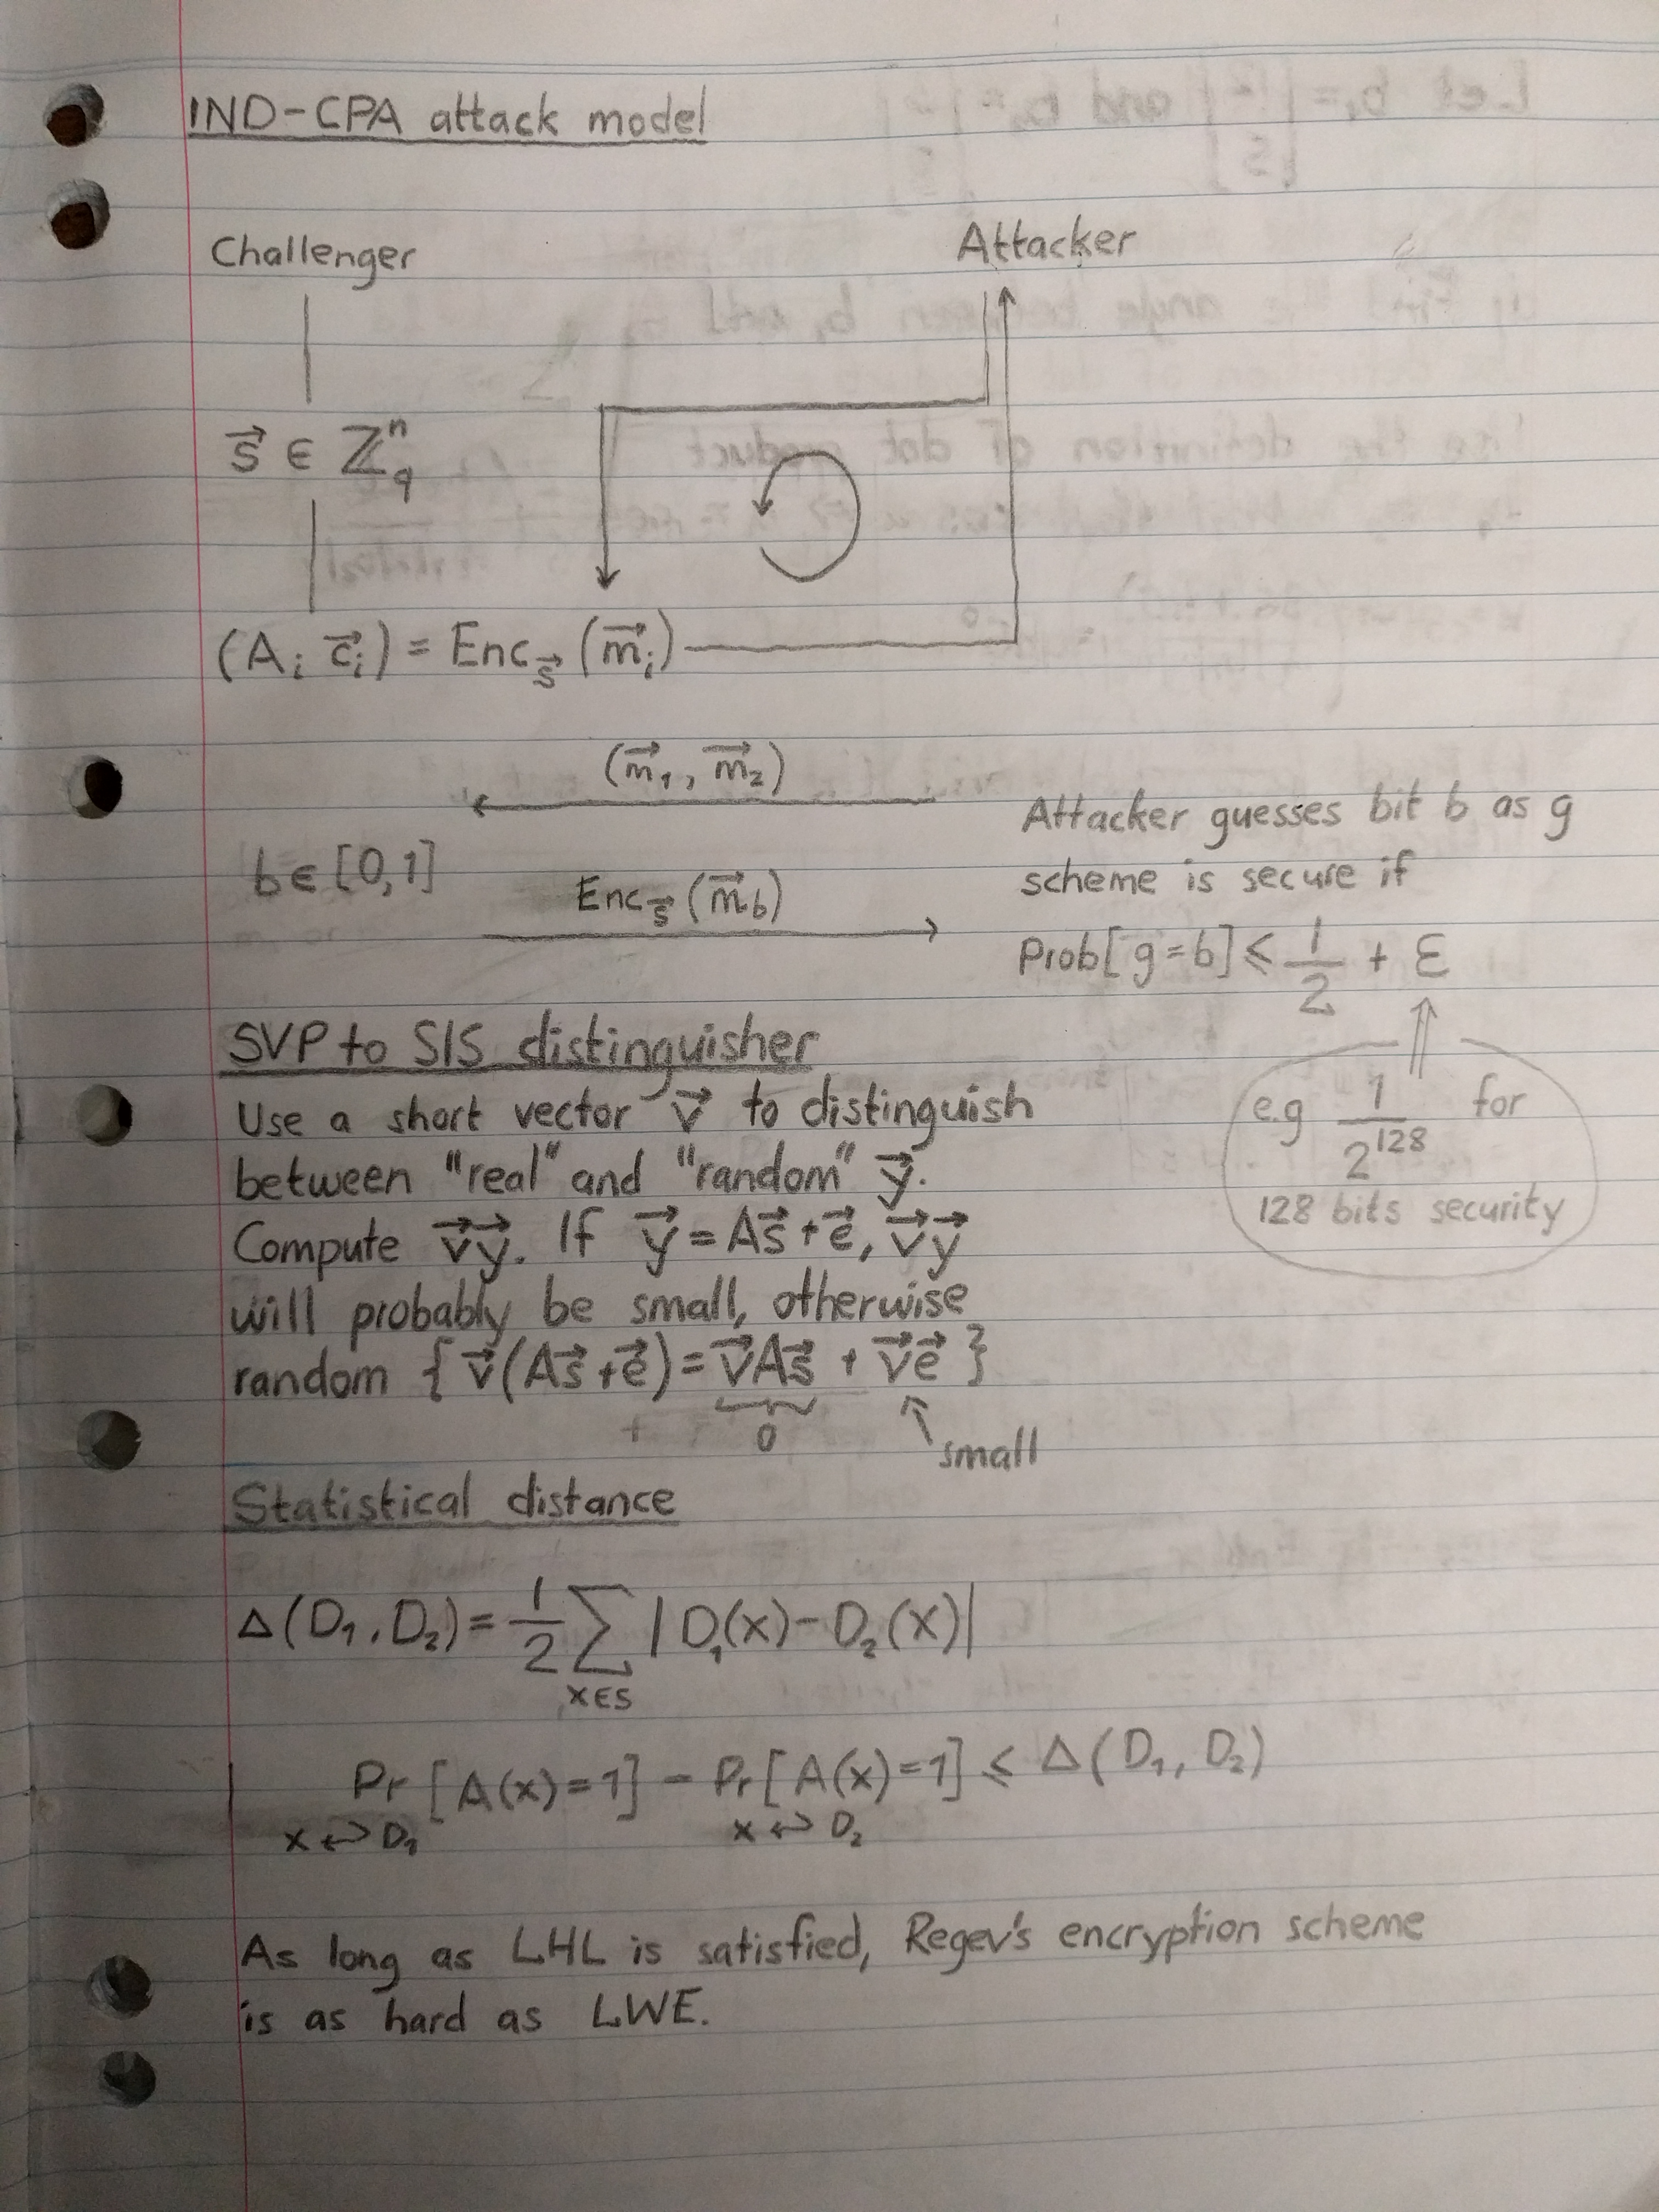 IND-CPA attack model
Challenger Attacker
s⃗ ∈ ℤ_q^n
(A_i c⃗_i) = Enc_s⃗ (m⃗_i)
(m⃗_1, m⃗_2)
Attacker guesses bit b as g
b ∈ [0,1]
scheme is secure if
Enc_s⃗ (m⃗_b)
Prob[g=b] ⩽ 1/2 + ε
SVP to SIS distinguisher
e.g 1/2^128 for
128 bits security
Use a short vector v⃗ to distinguish
between "real" and "random" y⃗.
Compute v⃗y⃗. If y⃗ = As⃗ + e⃗, v⃗y⃗
will probably be small, otherwise
random { v⃗(As⃗ + e⃗) = v⃗As⃗ + v⃗e⃗ }
0
small
Statistical distance
Δ(D_1, D_2) = 1/2 ∑_{x∈S} | D_1(x) - D_2(x) |
Pr_{x ↩ D_1} [A(x)=1] - Pr_{x ↩ D_2} [A(x)=1] ⩽ Δ(D_1, D_2)
As long as LHL is satisfied, Regev's encryption scheme
is as hard as LWE.